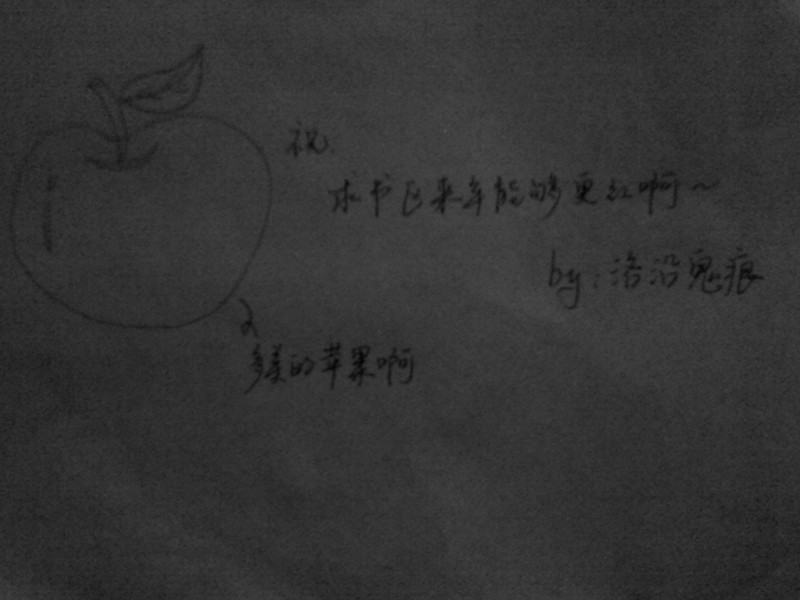 祝.
求书区来年能够更红啊~
by:洛沿鬼痕
多美的苹果啊